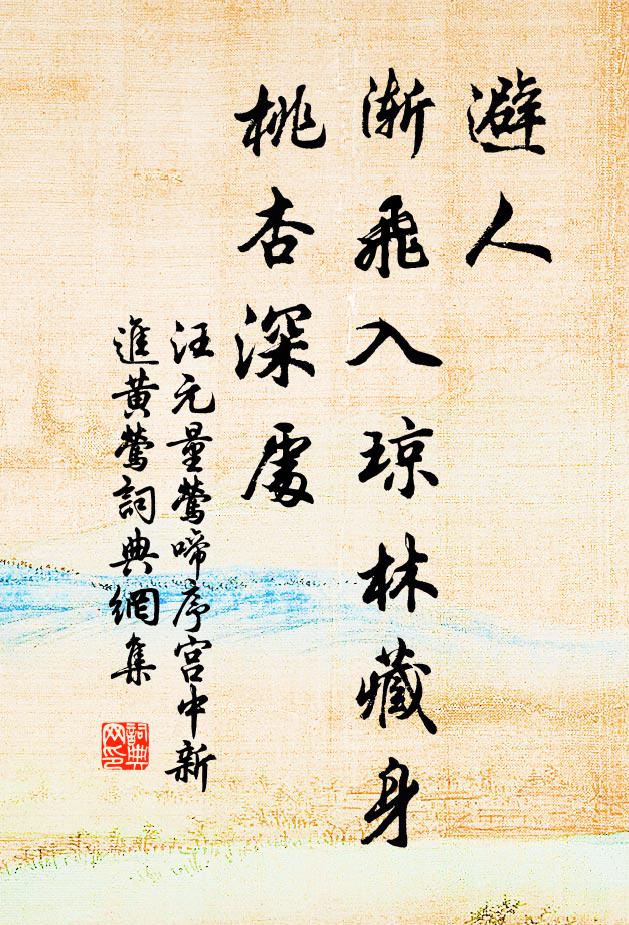 避人
漸飛入琼林藏身
桃杏深處
汪元量鶯啼序宫中新
進黄鶯詞典網集
詞典
网印